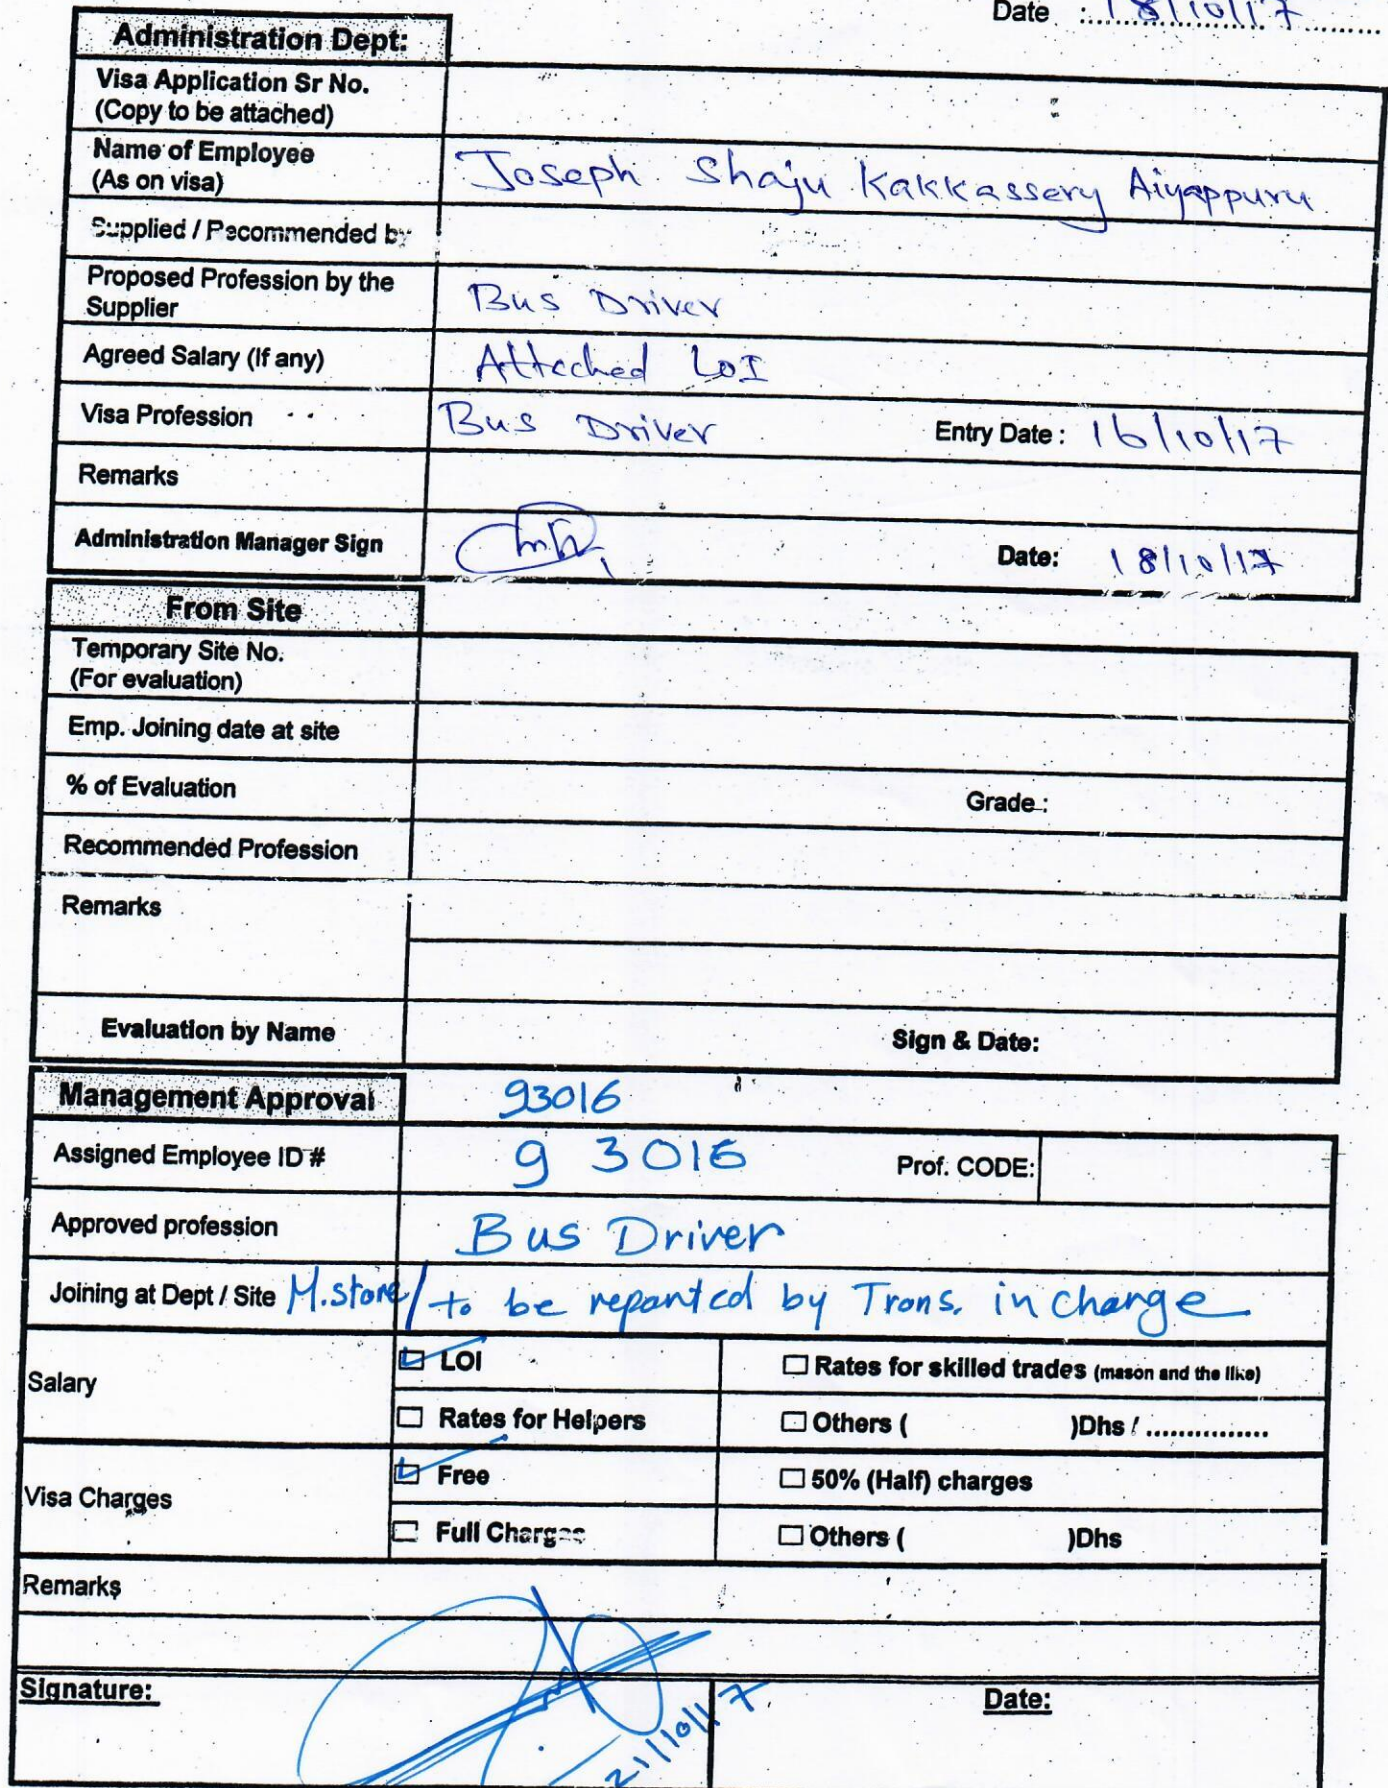 Date : 18/10/17
Administration Dept:
Visa Application Sr No.
(Copy to be attached)
Name of Employee
(As on visa)
Joseph Shaju Kakkassery Aiyappuru
Supplied / Recommended by
Proposed Profession by the
Supplier
Bus Driver
Agreed Salary (If any) Attached LOI
Visa Profession Bus Driver Entry Date : 16/10/17
Remarks
Administration Manager Sign Date: 18/10/17
From Site
Temporary Site No.
(For evaluation)
Emp. Joining date at site
% of Evaluation Grade :
Recommended Profession
Remarks
Evaluation by Name Sign & Date:
Management Approval 93016
Assigned Employee ID # 93016 Prof. CODE:
Approved profession Bus Driver
Joining at Dept / Site M.store/ to be reported by Trans. incharge
Salary
LOI Rates for skilled trades (mason and the like)
Rates for Helpers Others ( )Dhs / ................
Visa Charges
Free 50% (Half) charges
Full Charges Others ( )Dhs
Remarks
Signature: 21/10/17 Date: